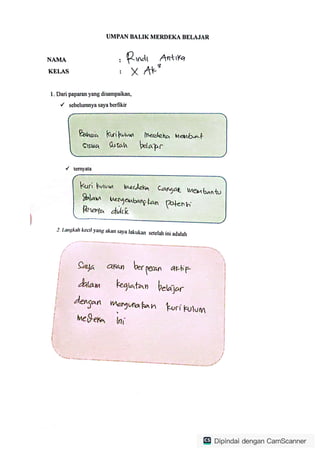 UMPAN BALIK MERDEKA BELAJAR
NAMA : Rindi Antika
KELAS : X Ak
1. Dari paparan yang disampaikan,
✓ sebelumnya saya berfikir
Bahwa kurikulum merdeka membuat
siswa susah belajar
✓ ternyata
kurikulum merdeka sangat membantu
dalam mengembangkan potensi
Peserta didik
2. Langkah kecil yang akan saya lakukan setelah ini adalah
Saya akan berperan aktif
dalam kegiatan belajar
dengan menggunakan kurikulum
merdeka ini
CS Dipindai dengan CamScanner